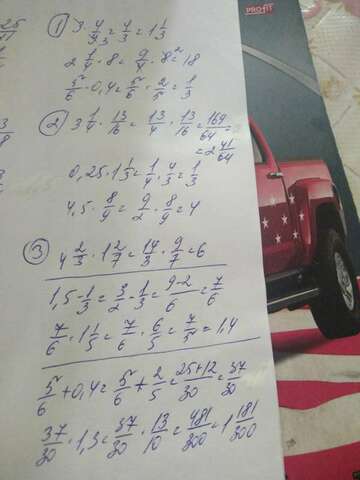 25
1) 3·4/9=4/3=1 1/3
2 1/4·8=9/4·8=18
5/6·0,4=5/6·2/5=1/3
2) 3 1/4·13/16=13/4·13/16=169/64=
=2 41/64
0,25·1 1/3=1/4·4/3=1/3
4,5·8/9=9/2·8/9=4
3) 4 2/3·1 2/7=14/3·9/7=6
1,5-1/3=3/2-1/3=9-2/6=7/6
7/6·1 1/5=7/6·6/5=7/5=1,4
5/6+0,4=5/6+2/5=25+12/30=37/30
37/30·1,3=37/30·13/10=481/300=1 181/300
PROFIT